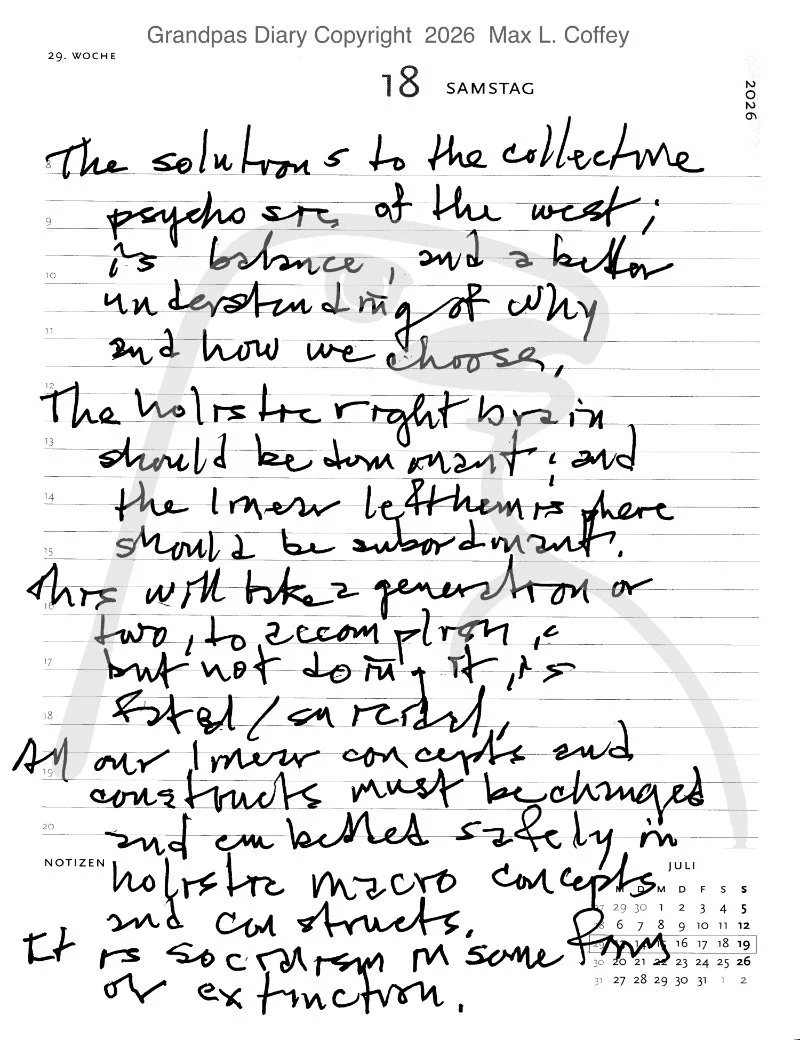 Grandpas Diary Copyright 2026 Max L. Coffey
29. WOCHE
18 SAMSTAG
2026
The solutions to the collective
psychosis, of the west;
is balance, and a better
understanding of why
and how we choose,
The holistic right brain
should be dominant; and
the linear left hemisphere
should be subordinant.
This will take a generation or
two, to accomplish,
but not doing it, is
fatal/suicidal,
All our linear concepts and
constructs must be changed
and embedded safely in
holistic macro concepts
and constructs.
It is socialism in some form
or extinction.
8
9
10
11
12
13
14
15
16
17
18
19
20
NOTIZEN
JULI
M D M D F S S
27 29 30 1 2 3 4 5
28 6 7 8 9 10 11 12
14 16 17 18 19
30 20 21 22 23 24 25 26
31 27 28 29 30 31 1 2